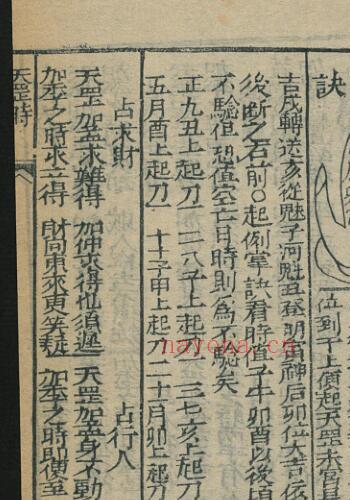 訣
位到千上順起天罡未宮是
吉戌轉送亥從魁子河魁丑登明寅神后卯位大吉辰
後斷之右前○起例掌訣看時值子午卯酉以後
不驗但恐值空亡日時則為不驗矣
正九丑上起刀 二八子上起刀 三七亥上起刀
五月酉上起刀 十子甲上起刀 二十月卯上起刀
占求財
占行人
天罡加孟求難得 加仲求得也須遲
天罡加孟身不動
加季之時求立得 財向東來更笑
加季之時即便至
天罡時
nayona.cn